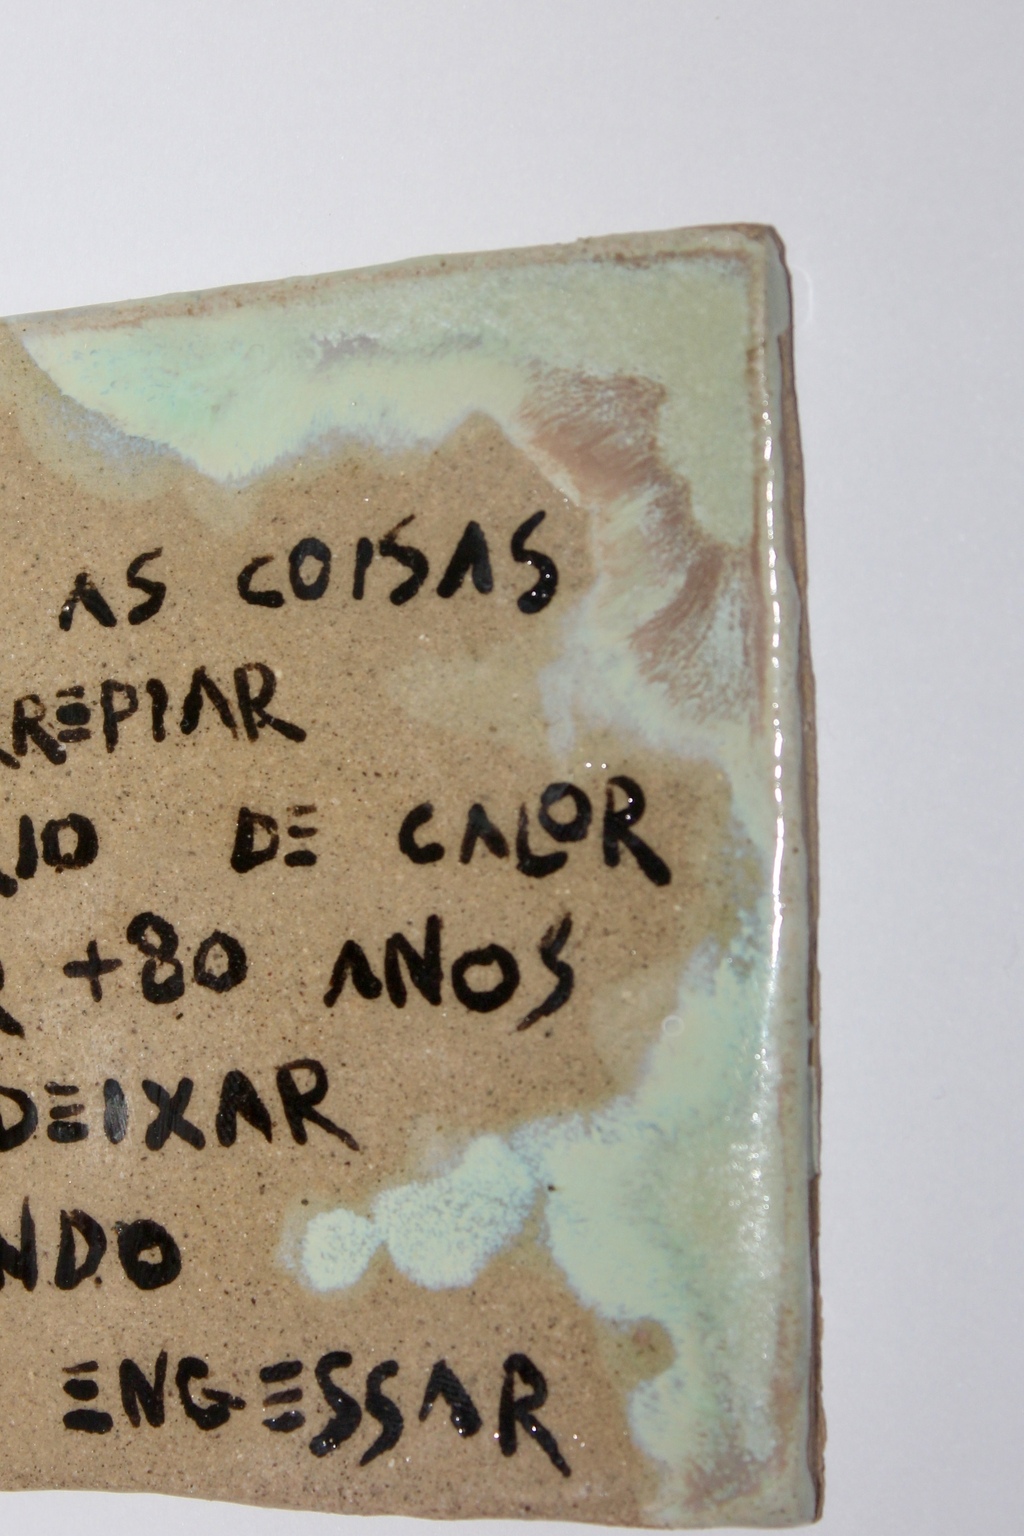 AS COISAS
RREPIAR
RIO DE CALOR
R +80 ANOS
DEIXAR
NDO
ENGESSAR